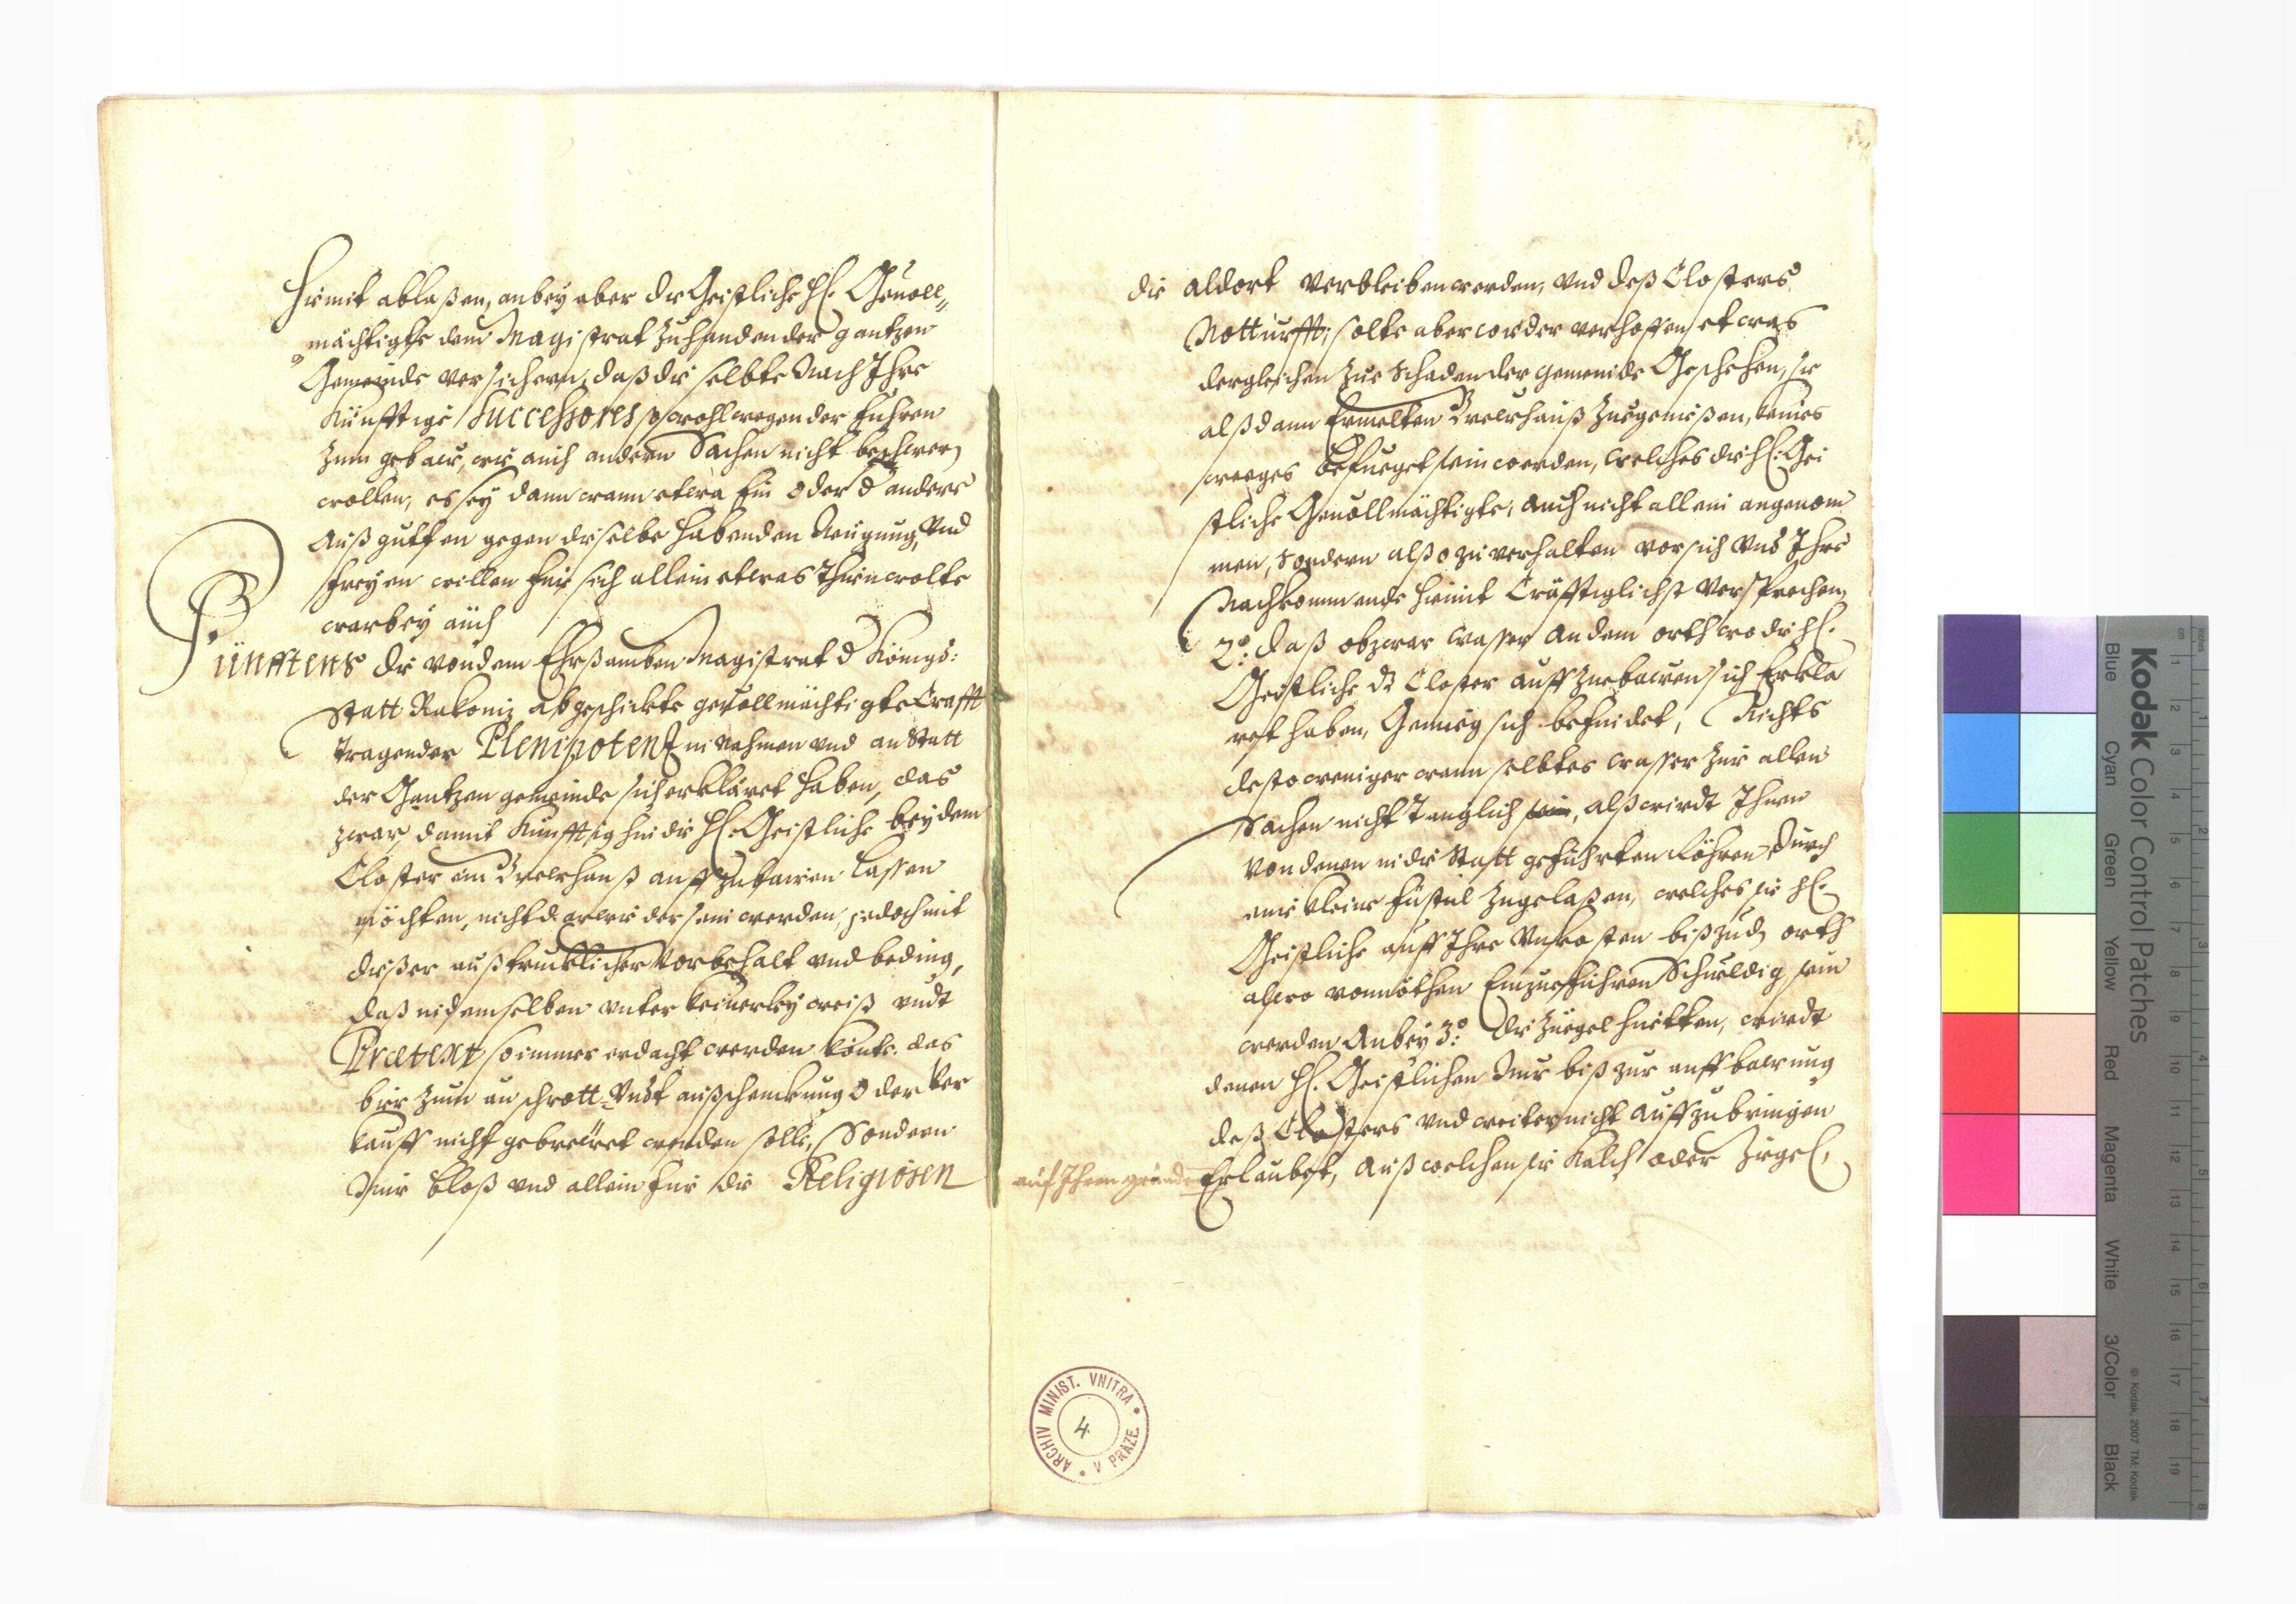 hiemit ablaßen, anbey aber die Geistliche H. Gevoll„
mächtigte dem Magistrat zuhanden der gantzen
Gemeinde versichern, daß die selbte Nach Ihre
Künfftige Successores so wohl wegen der fuhren
zum gebaw, wie auch andern Sachen nicht beschwern
wollen, es sey dann wann etwa Ein oder d andere
Auß gutten gegen dieselbe habenden Neigung, Und
freyen willen für sich allein etwas Thuen wolte
warbey auch
Fünfftens die von dem Ehrsamben Magistrat d Königs:
Statt Rakoniz abgeschickte gevollmächtigte Crafft
tragender Plenipotenz in nahmen und an Statt
der Gantzen gemeinde sich erkläret haben, das
zwar, damit Kunfftighin die H. Geistliche bey dem
Closter ein Brewhauß auffzubawen Lassen
möchten, nicht darwieder sein werden, jedoch mit
dießer außtrucklicher Vorbehalt und beding,
daß in demselben unter keinerley weiß undt
Prætext so immer erdacht werden könte, das
bier zum außschrott, Undt außschenkung oder Ver
kauff nicht gebrewet werden solle, Sondern
Nur bloß und allein für die Religiosen
die aldort verbleiben werden, und deß Closters
Notturfft; solte aber wieder verhoffen etwas
dergleichen zue Schaden der gemeinde Geschehen, sie
alßdann Ermelten Brewhauß zue genießen, keines
weeges befueget sein werden, welches die H: Gei
stliche Gevollmächtigte, auch nicht allein angenom
men, Sondern also zu verhalten vor sich Und Ihre
Nachkommende hiemit Cräfftiglichst versprechen,
2º: daß obzwar wasser an dem orth wo die H.
Geistliche dz Closter auff zuebawen sich Erklä
ret haben, Genueg sich befindet, Nichts
desto weniger wann selbtes wasser zue allen
Sachen nicht Tauglich sein, alß wirdt Ihnen
Von denen in die Statt geführten Röhren Durch
eine kleine füstul zugelaßen, welches sie H.
Geistliche auff Ihre Unkosten biß zu d orth
alwo vonnöthen Einzueführen Schuldig sein
werden Anbey 3º: Die Ziegel hütten, wirdt
denen H. Geistlichen Nur biß zur auffbawung
deß Closters und weiter nicht auffzubringen
auf Ihren grund Erlaubet, Auß welchen sie Kalch oder Ziegel,
ARCHIV MINIST. VNITRA * V PRAZE *
4
Kodak Color Control Patches
Blue Cyan Green Yellow Red Magenta White 3/Color Black
© Kodak, 2007 TM: Kodak
cm 1 2 3 4 5 6 7 8 9 10 11 12 13 14 15 16 17 18 19
inches 1 2 3 4 5 6 7 8